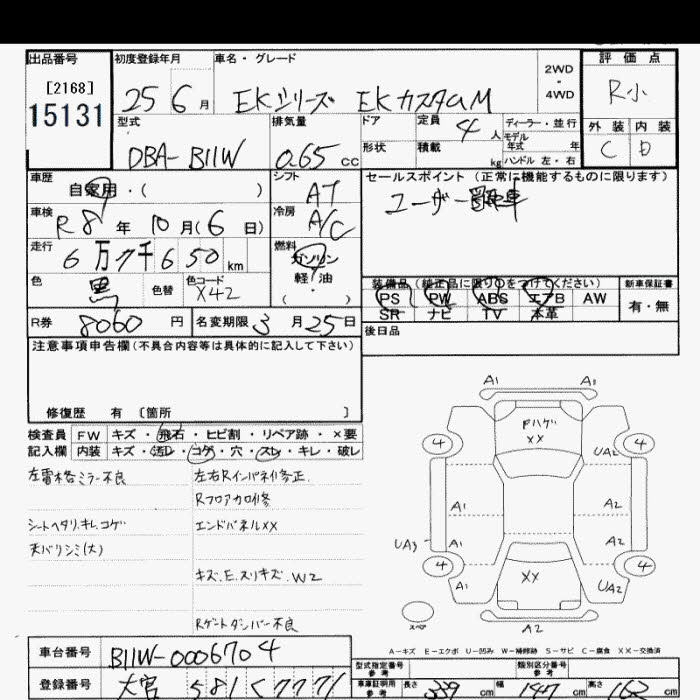 出品番号 初度登録年月 車名・グレード 2WD・4WD 評価点
[2168]
15131
25 6月 EKシリーズ EKカスタムM R小
型式 排気量 ドア 定員 4人 ディーラー・並行 外装 内装
モデル年式 年
DBA-B11W 0.65cc 形状 積載 kg ハンドル 左・右 C D
車歴 シフト セールスポイント (正常に機能するものに限ります)
自家用・( ) AT ユーザー買取車
車検 R8年 10月(6日) 冷房 A/C
走行 6万7千650km 燃料 ガソリン
軽・油
( )
色 黒 色替 色コード X42 装備品(純正品に限り○をつけてください) 新車保証書
PS PW ABS エアB AW 有・無
SR ナビ TV 本革
R券 8060円 名変期限 3月25日 後日品
注意事項申告欄(不具合内容等は具体的に記入して下さい)
修復歴 有 〔箇所 〕
検査員 FW キズ・飛石・ヒビ割・リペア跡・×要
記入欄 内装 キズ・汚レ・コゲ・穴・スレ・キレ・破レ
左電格ミラー不良 左右Rインパネイ修正.
Rフロアカロ修
シートヘタリ.キレ.コゲ エンドパネルXX
天バリシミ(大)
キズ.E.スリキズ.W2
Rゲートダンパー不良
A1 A1
Fハゲ
XX
4 4
UA2
A1 A2
UA3 A1 A2
4 4
XX
A1 UA2
スペア
A2
A-キズ E-エクボ U-凹み W-補修跡 S-サビ C-腐食 XX-交換済
車台番号 B11W-0006704
型式指定番号 参考 類別区分番号 参考
登録番号 大宮 581く7771
車庫証明用 参考 長さ 339cm 幅 147cm 高さ 162cm